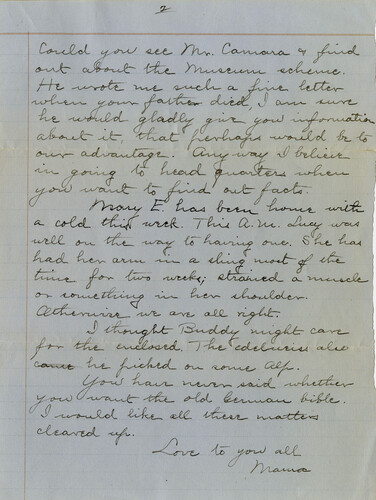 2
Could you see Mr. Camara & find
out about the Museum scheme.
He wrote me such a fine letter
when your father died, I am sure
he would gladly give you information
about it, that perhaps would be to
our advantage. Any way I believe
in going to head quarters when
you want to find out facts.
Mary E. has been home with
a cold this week. This A.M. Lucy was
well on the way to having one. She has
had her arm in a sling most of the
time for two weeks; strained a muscle
or something in her shoulder.
Otherwise we are all right.
I thought Buddy might care
for the enclosed. The also
he picked on some
You have never said whether
you want the old German bible.
I would like all these matters
cleared up.
Love to you all
Mama